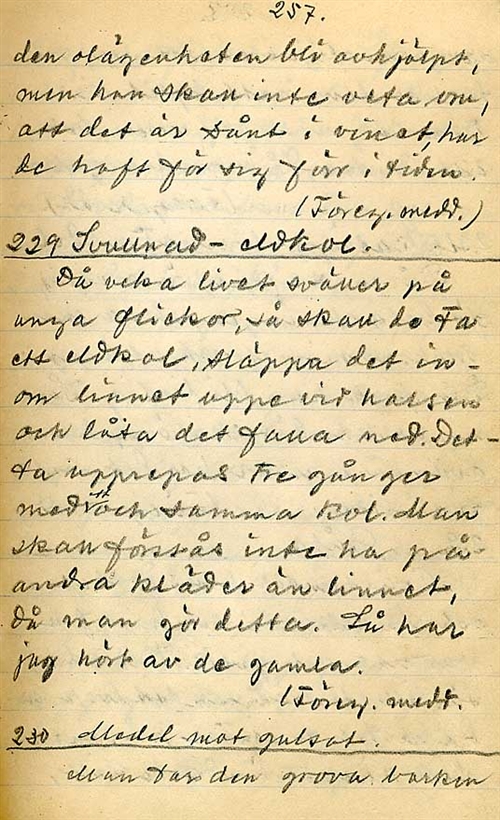 257.
den olägenheten bli avhjälpt,
men han skall inte veta om,
att det är sånt i vinet, har
de haft för sig förr i tiden.
(Föreg. medd.)
229 Svullnad – eldkol.
Då veka livet sväller på
unga flickor, så skall de ta
ett eldkol, släppa det in-
om linnet uppe vid halsen
och låta det falla ned. Det-
ta upprepas tre gånger
med ett och samma kol. Man
skall förstås inte ha på
andra kläder än linnet,
då man gör detta. Så har
jag hört av de gamla.
(Föreg. medd.
230 Medel mot gulsot.
Man tar den grova barken